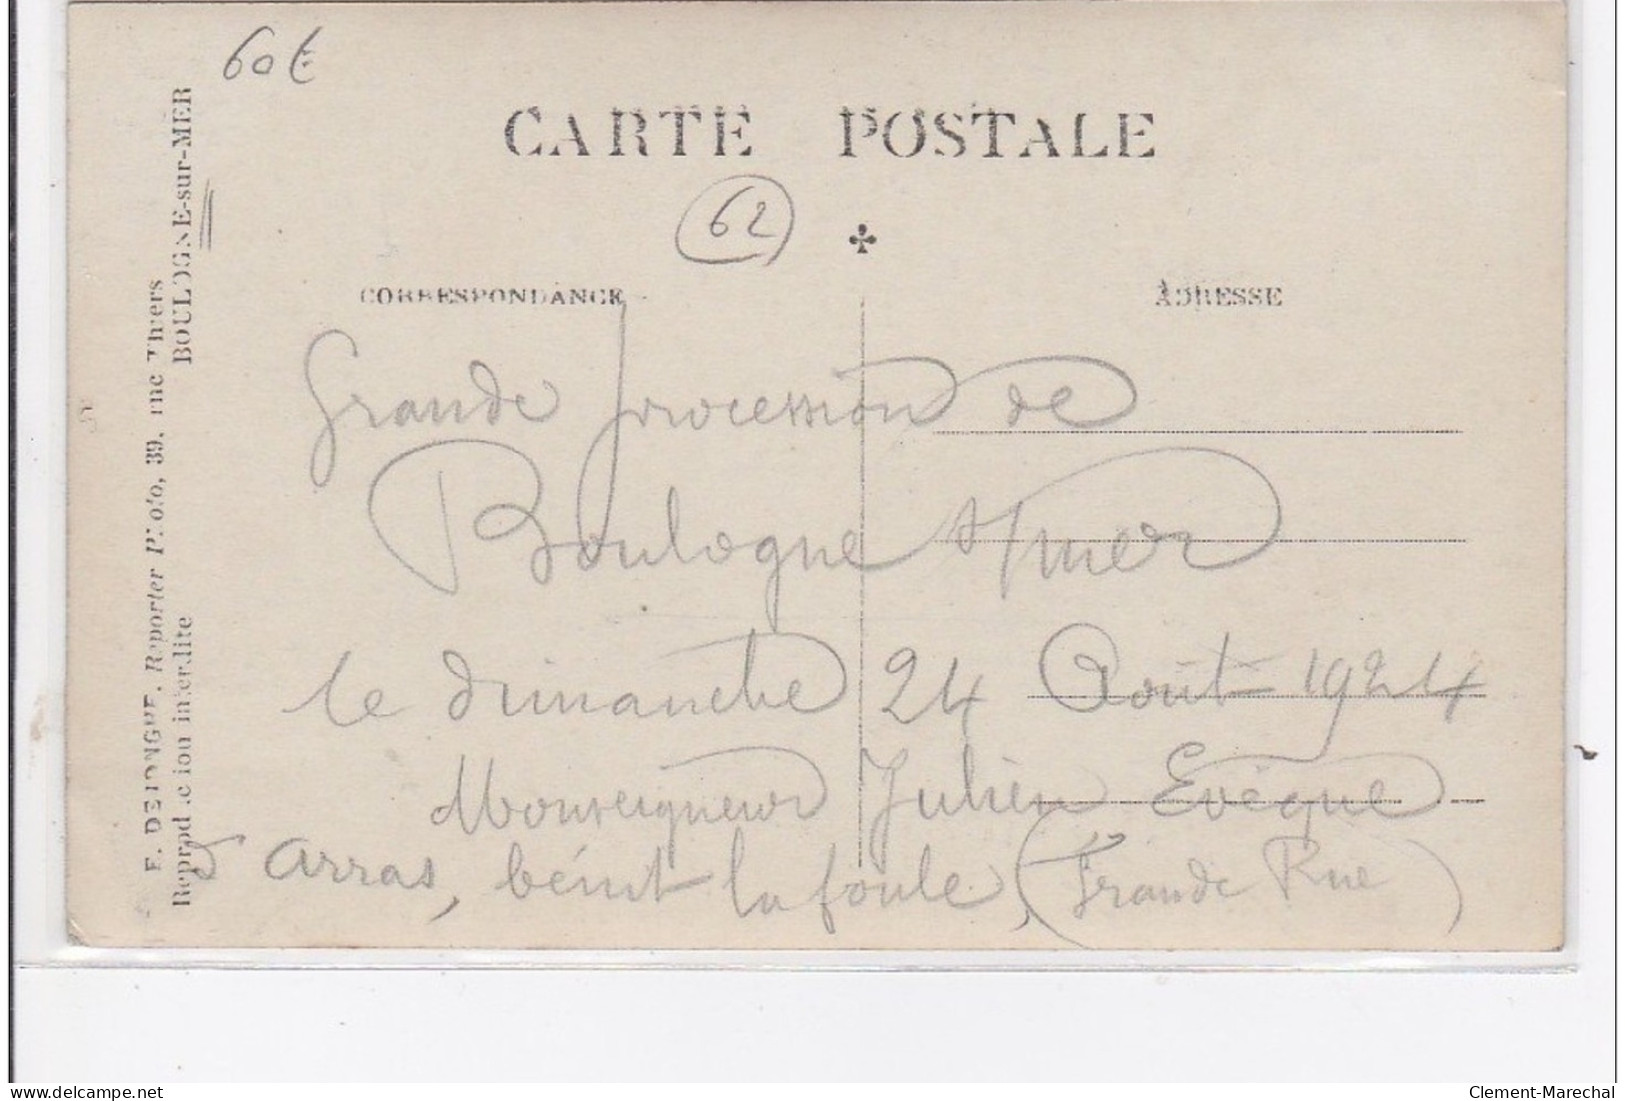 60€
CARTE POSTALE
62
CORRESPONDANCE
ADRESSE
Grande procession de
Boulogne s/mer
le dimanche 24 Août 1924
Monseigneur Julien Evêque
d'Arras, bénit la foule, (Grande Rue)
E. DEJONGHE, Reporter Photo, 39, rue Thiers
BOULOGNE-sur-MER
Reproduction interdite
delcampe.net
Clement-Marechal